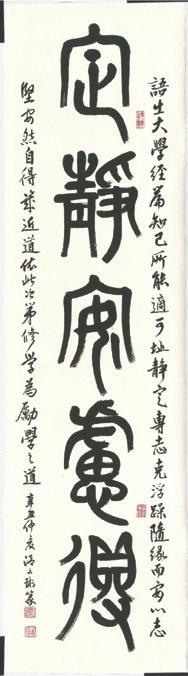 定靜安慮得
語出大學經篇知己所能適可址靜定專志克浮躁隨緣而安以志
堅安然自得幾近道依此次第修學為勵學之道 辛丑仲夏